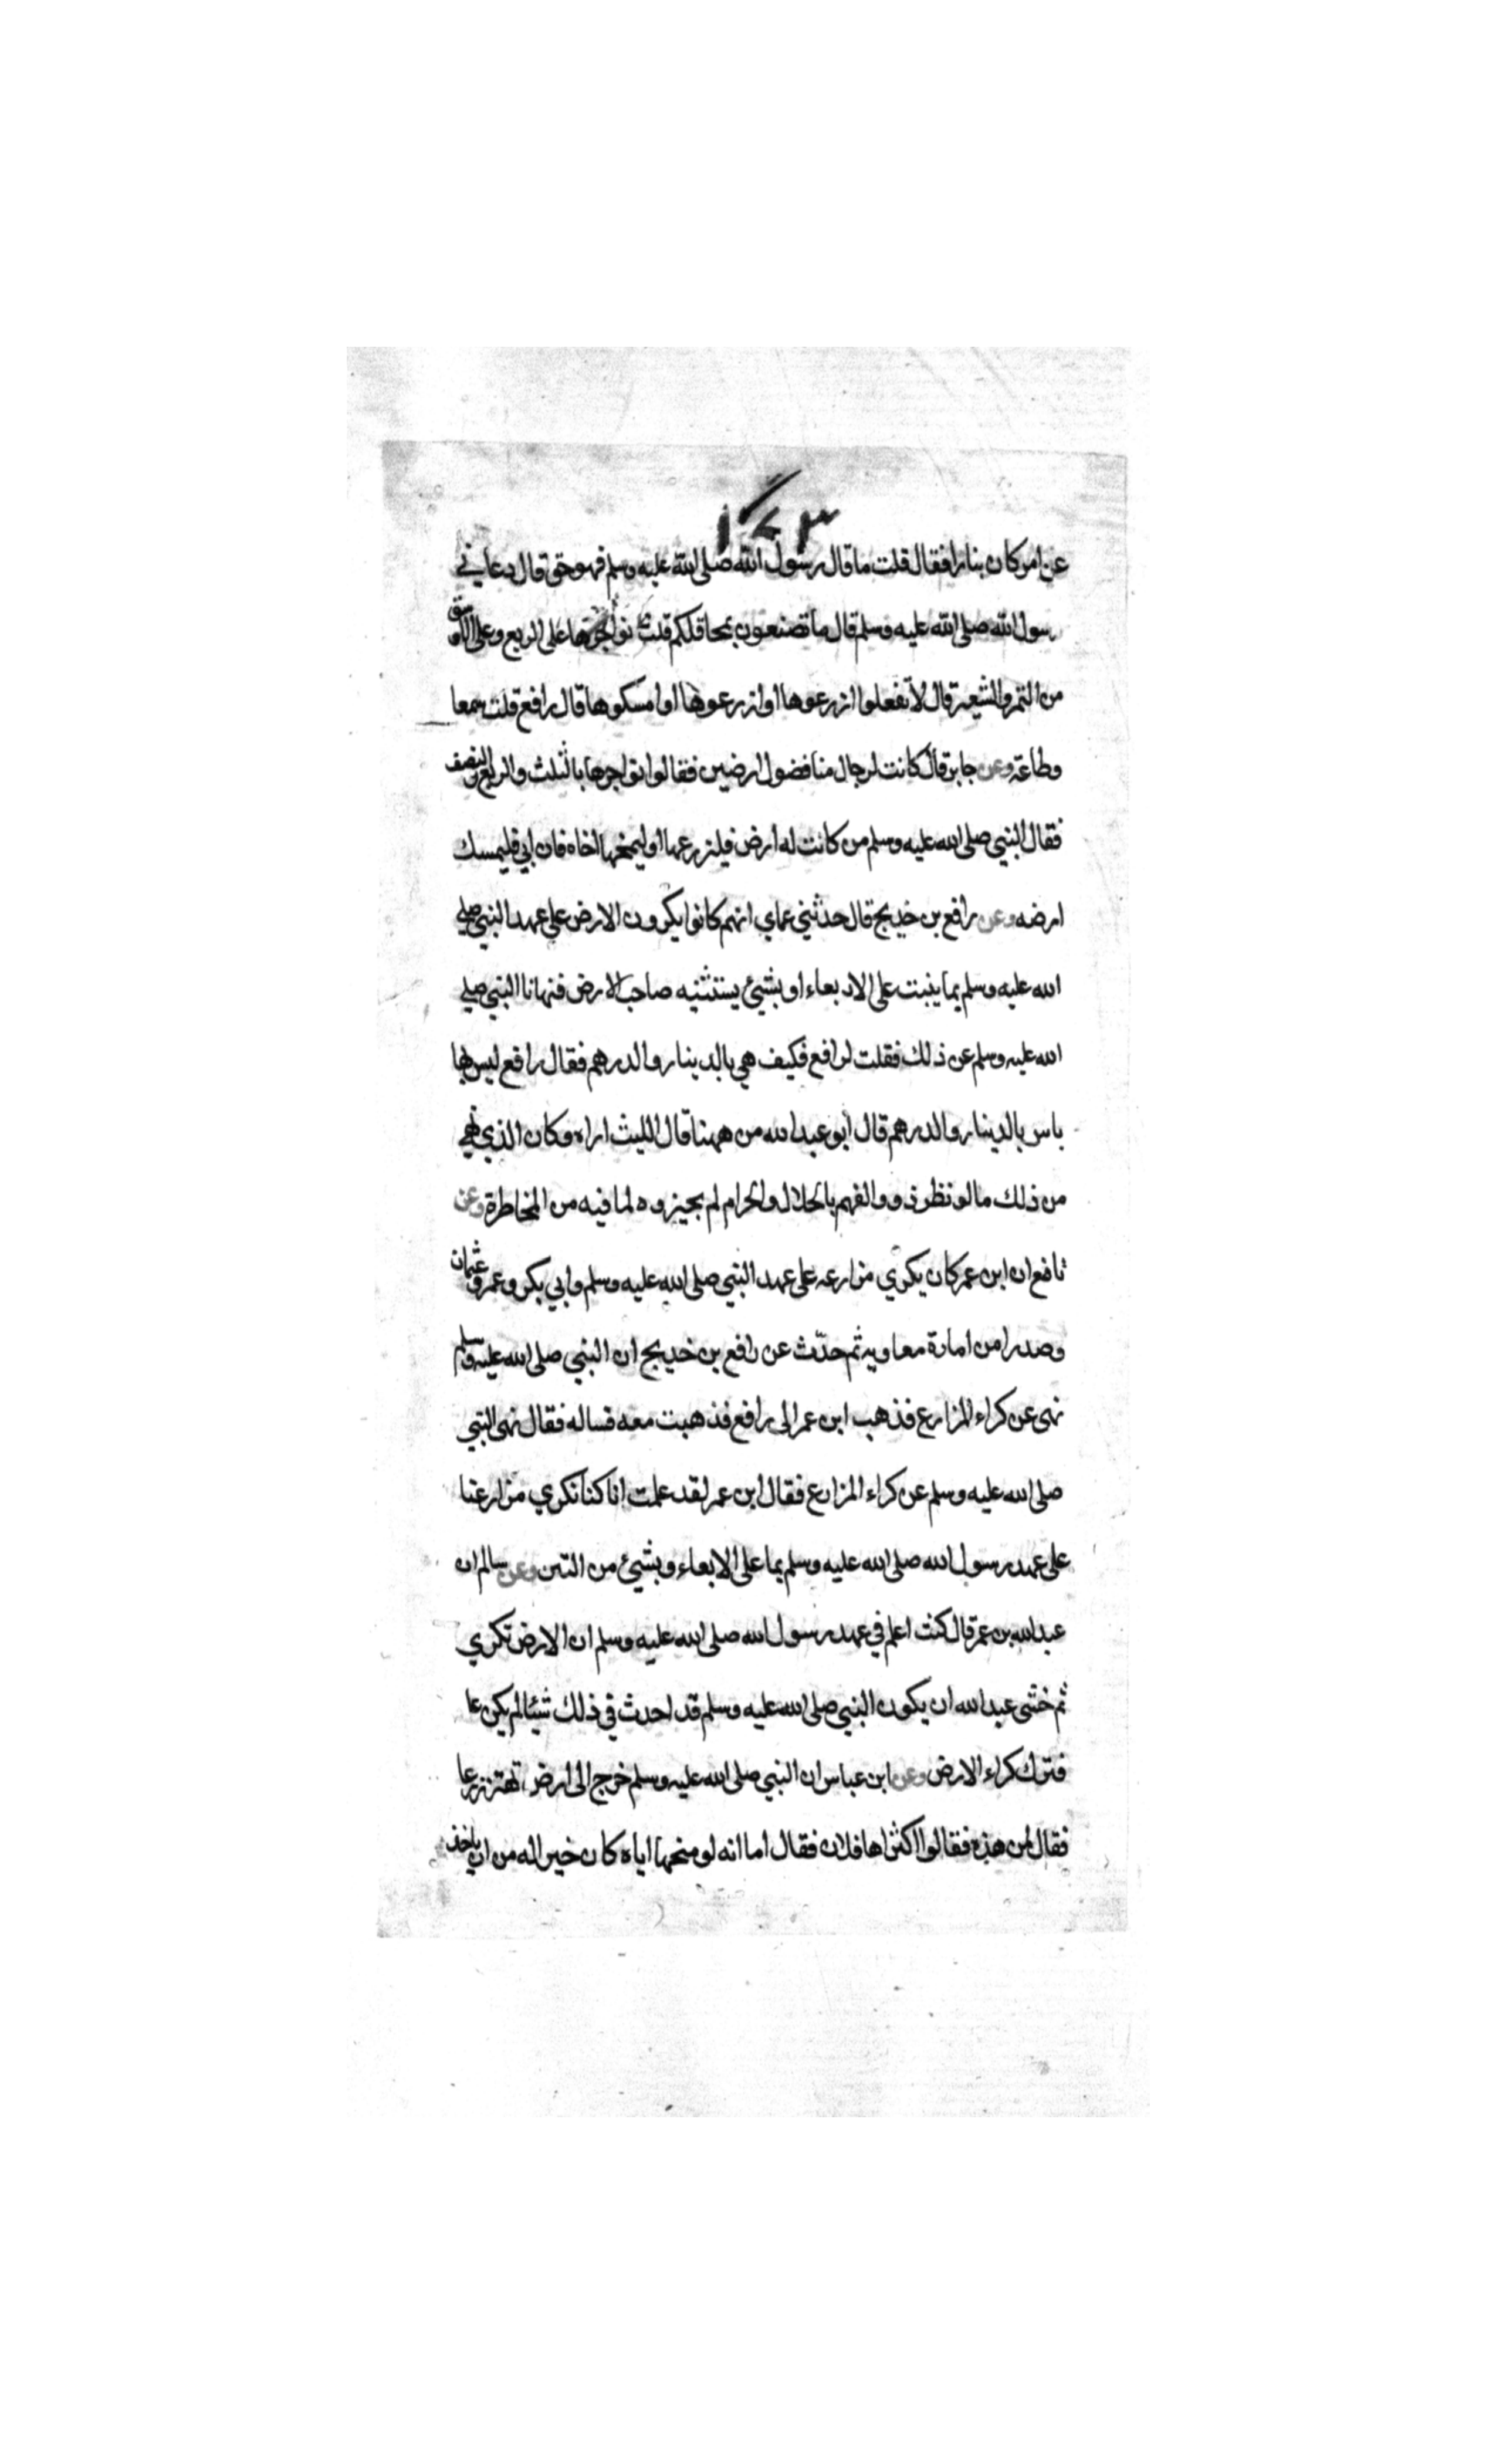 ١٧٣
عن امر كان بنا رافقا قال قلت ما قال رسول الله صلى الله عليه وسلم فهو حق قال دعاني
رسول الله صلى الله عليه وسلم قال ما تصنعون بمحاقلكم قلت نواجرها على الربع وعلى الاوسق
من التمر والشعير قال لا تفعلوا ازرعوها او ازرعوها او امسكوها قال رافع قلت سمعا
وطاعة وعن جابر قال كانت لرجال منا فضول ارضين فقالوا نواجرها بالثلث والربع والنصف
فقال النبي صلى الله عليه وسلم من كانت له ارض فليزرعها او ليمنحها اخاه فان ابي فليمسك
ارضه وعن رافع بن خديج قال حدثني عماي انهم كانوا يكرون الارض علي عهد النبي صلي
الله عليه وسلم بما ينبت على الاربعاء او بشيئ يستثنيه صاحب الارض فنهانا النبي صلي
الله عليه وسلم عن ذلك فقلت لرافع فكيف هي بالدينار والدرهم فقال رافع ليس بها
باس بالدينار والدرهم قال ابو عبد الله من ههنا قال الليث اراه وكان الذي نهي
من ذلك ما لو نظر ذوو الفهم بالحلال والحرام لم يجيزوه لما فيه من المخاطرة وعن
نافع ان ابن عمر كان يكري مزارعه على عهد النبي صلى الله عليه وسلم وابي بكر وعمر وعثمان
وصدرا من امارة معاوية ثم حدّث عن رافع بن خديج ان النبي صلى الله عليه وسلم
نهى عن كراء المزارع فذهب ابن عمر الى رافع فذهبت معه فساله فقال نهى النبي
صلى الله عليه وسلم عن كراء المزارع فقال ابن عمر لقد علمت انا كنا نكري مزارعنا
على عهد رسول الله صلى الله عليه وسلم بما على الابعاء وبشيئ من التبن وعن سالم ان
عبد الله بن عمر قال كنت اعلم في عهد رسول الله صلى الله عليه وسلم ان الارض تكري
ثم خشى عبد الله ان يكون النبي صلى الله عليه وسلم قد احدث في ذلك شيئا لم يكن عا
فترك كراء الارض وعن ابن عباس ان النبي صلى الله عليه وسلم خرج الى ارض تهتز زرعا
فقال لمن هذه فقالوا اكتراها فلان فقال اما انه لو منحها اياه كان خيرا له من ان ياخذ